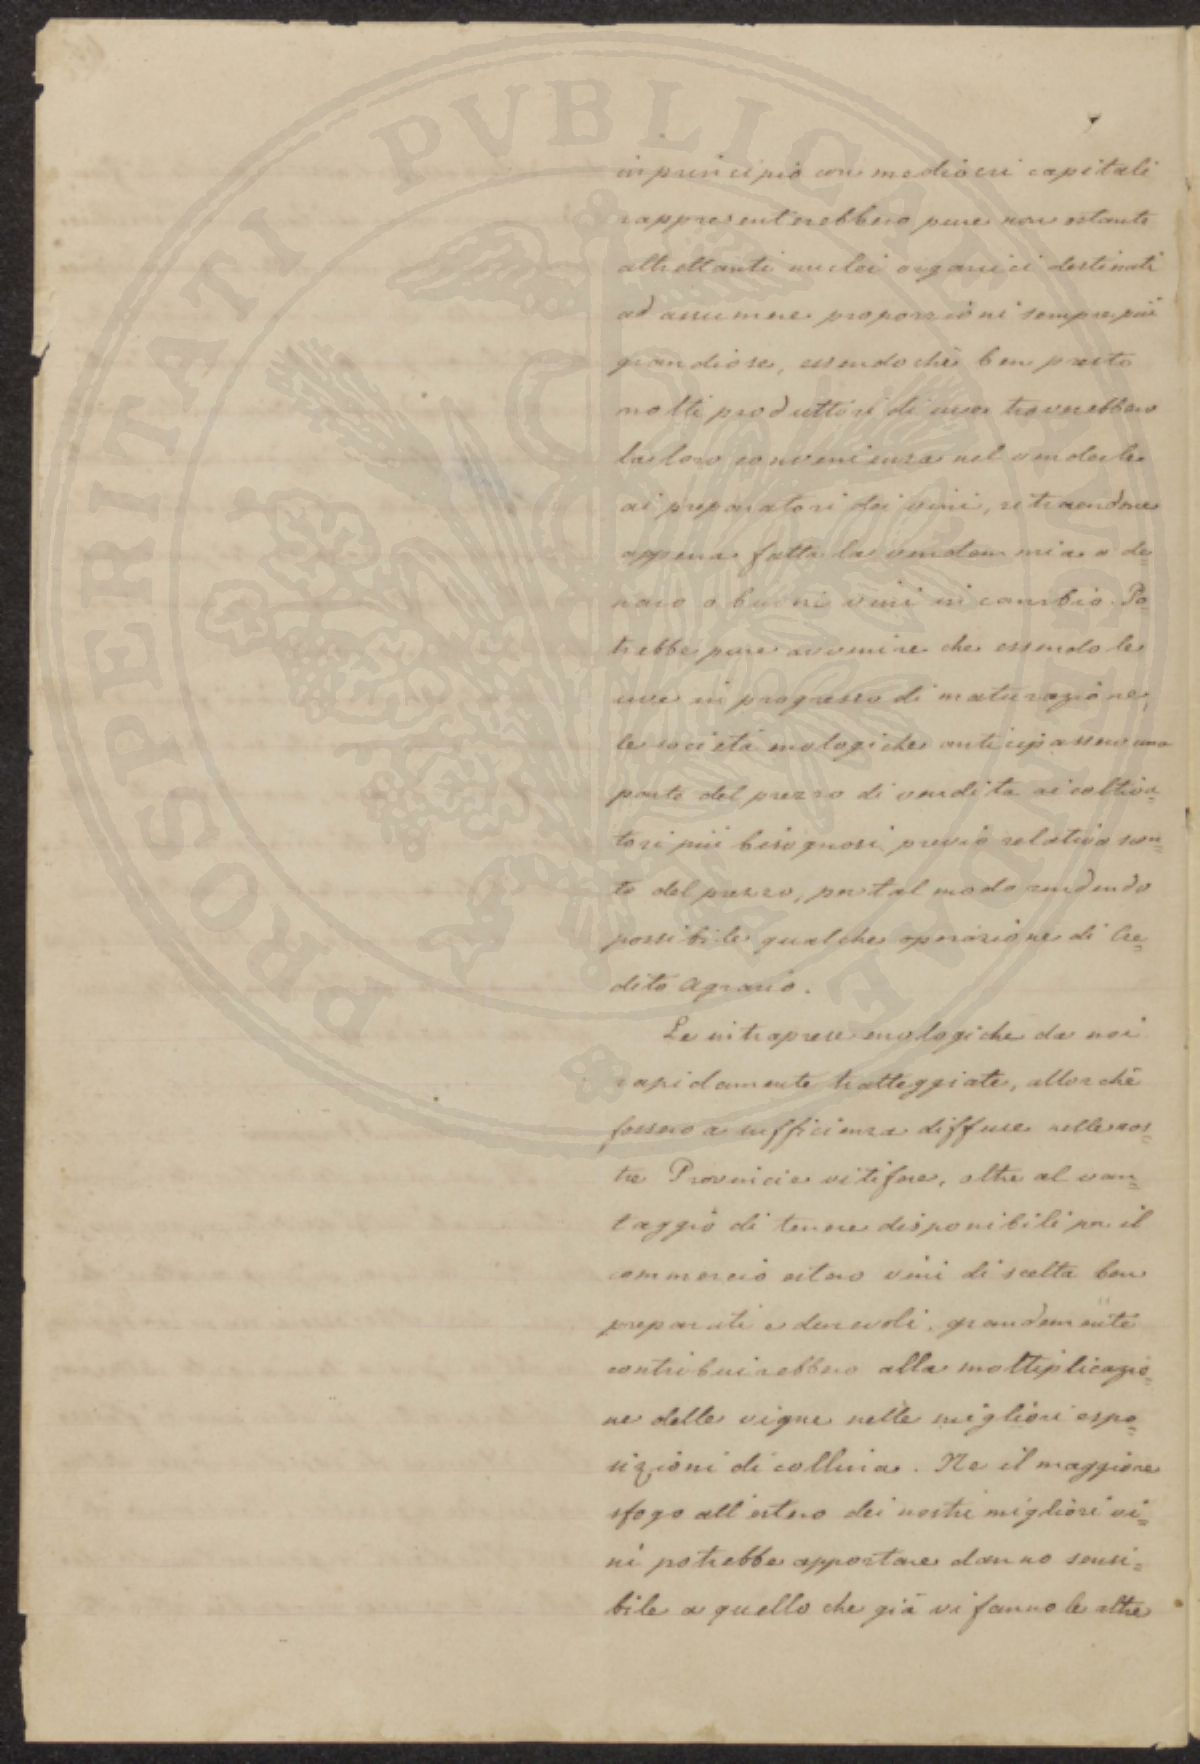 in principio con mediocri capitali
rappresenterebbero pure non ostante
altrettanti nuclei organici destinati
ad assumere proporzioni sempre più
grandiose, essendochè ben presto
molti produttori di uva troverebbero
la loro convenienza nel venderle
ai preparatori dei vini, ritraendone
appena fatta la vendemmia o de=
naro o buoni vini in cambio. Po=
trebbe pure avvenire che essendo le
uve in progresso di maturazione,
le società enologiche anticipassero una
parte del prezzo di vendita ai coltiva=
tori più bisognosi previo relativo scon=
to del prezzo, per tal modo rendendo
possibile qualche operazione di Cre=
dito Agrario.
Le intraprese enologiche da noi
rapidamente tratteggiate, allorchè
fossero a sufficienza diffuse nelle nos=
tre Provincie vitifere, oltre al van=
taggio di tenere disponibili per il
commercio estero vini di scelta ben
preparati e durevoli, grandemente
contribuirebbero alla moltiplicazio=
ne delle vigne nelle migliori espo=
sizioni di collina. Ne il maggiore
sfogo all'estero dei nostri migliori vi=
ni potrebbe apportare danno sensi=
bile a quello che già vi fanno le altre
PROSPERITATI PVBLICAE AVGENDAE